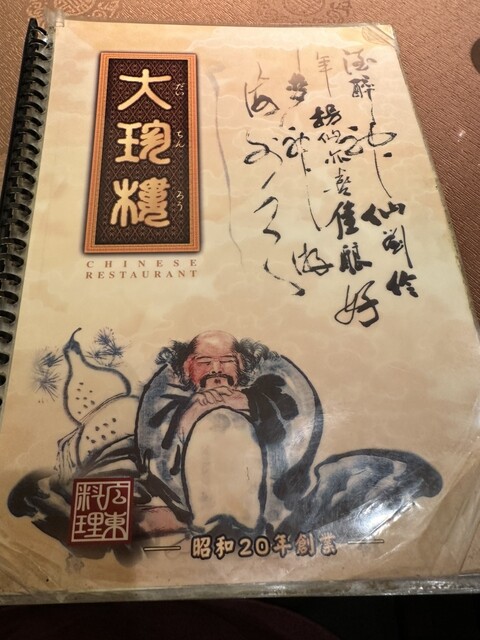 大珍樓
だい ちん ろう
CHINESE
RESTAURANT
酒醉神仙劉伶
喜佳釀好
広東
料理
昭和20年創業